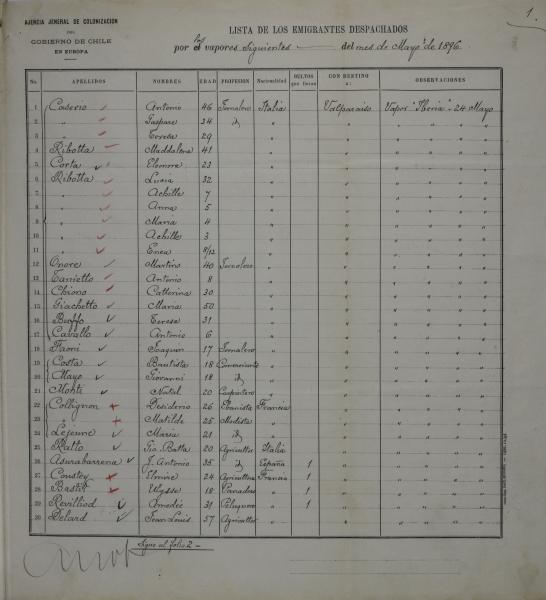 AJENCIA JENERAL DE COLONIZACION
DEL
GOBIERNO DE CHILE
EN EUROPA
1.
LISTA DE LOS EMIGRANTES DESPACHADOS
por los vapores siguientes del mes de Mayo de 1896.
No. APELLIDOS NOMBRES EDAD PROFESION Nacionalidad BULTOS que llevan CON DESTINO a: OBSERVACIONES
1 Caserio Antonio 46 Jornalero Italia Valparaiso Vapor "Iberia" - 24 Mayo
2 " Gaspare 34 id " " " " " "
3 " Teresa 29 " " " " " "
4 Ribotta Maddalena 41 " " " " " "
5 Corta 23 " " " " " "
6 Ribotta Luisa 32 " " " " " "
7 " Achille 7 " " " " " "
8 " Anna 5 " " " " " "
9 " Maria 4 " " " " " "
10 " Achille 3 " " " " " "
11 " Enea 8/12 " " " " " "
12 Onore Martino 40 Jornalero " " " " " "
13 Tanietto Antonio 8 " " " " " "
14 Chiono Catterina 30 " " " " " "
15 Giachetto Maria 50 " " " " " "
16 Boffo Teresa 31 " " " " " "
17 Cavallo Antonio 6 " " " " " "
18 Joaquin 17 Jornalero " " " " " "
19 Costa Bautista 18 Comerciante " " " " " "
20 Mayo Giovanni 18 id " " " " " "
21 Monti Natal 20 Carpintero " " " " " "
22 Collignon Desiderio 26 Ebanista Francia " " " " "
23 " Matilde 25 Modista " " " " " "
24 Lejeune Maria 21 id " " " " " "
25 Ratto Gio. Batta 20 Agricultor Italia " " " " "
26 Asurabarrena J. Antonio 35 id España 1 " " " " "
27 Elmire 24 Agricultora Francia 1 " " " " "
28 Bastit Ulysse 18 Panadero " 1 " " " " "
29 Revilliod Amedée 31 Peluquero " 1 " " " " "
30 Delard Jean Louis 57 Agricultor " " " " " "
Sigue al folio 2 -